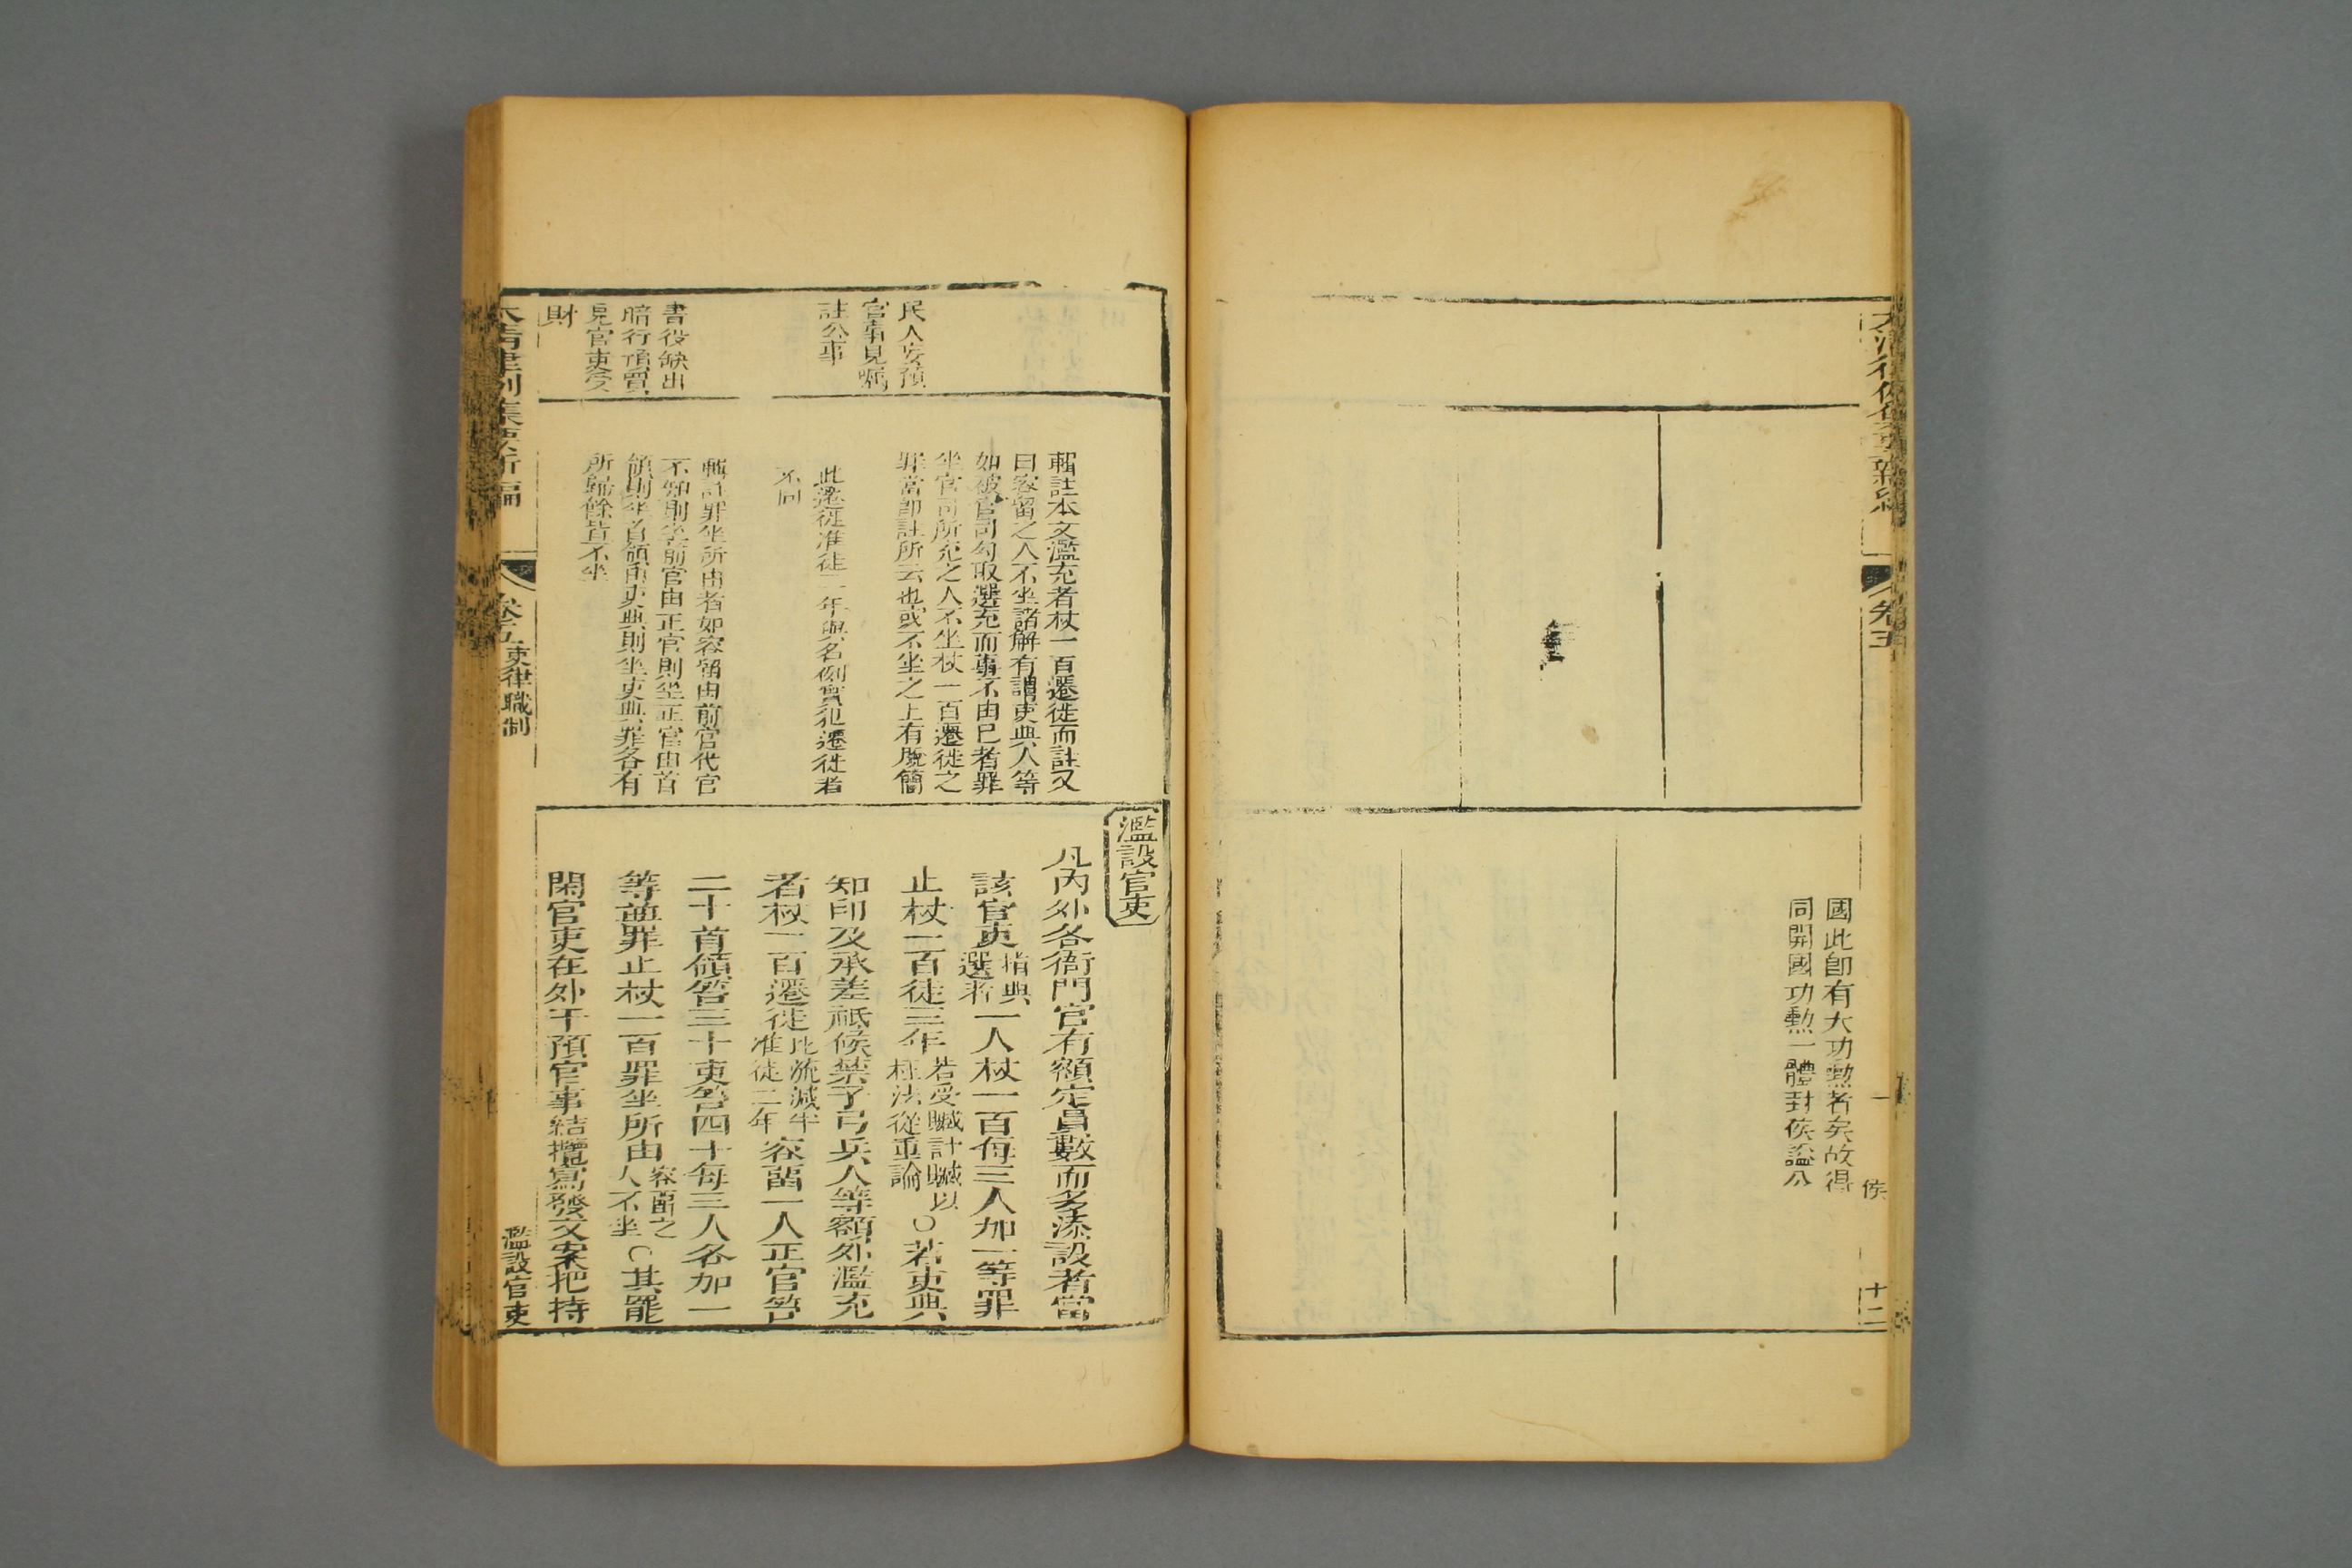 國此卽有大功勲者矣故得
同開國功勲一體封侯謚公
卷五
十二
民人妄預
官事見囑
註公事
書役缺出
暗行頂買
見官吏受
財
輯註本文濫充者杖一百遷徙而註又
曰容留之人不坐諸解有謂吏典人等
如被官司勾取選充而事不由已者罪
坐官司所充之人不坐杖一百遷徙之
罪當卽註所云也或不坐之上有脫簡
此遷徙准徒二年與名例實犯遷徙者
不同
輯註罪坐所由者如容留由前官代官
不知則坐前官由正官則坐正官由首
領則坐首領由吏典則坐吏典罪各有
所歸餘皆不坐
濫設官吏
凡內外各衙門官有額定員數而多添設者當
該官吏指典選者一人杖一百每三人加一等罪
止杖一百徒三年若受贓計贓以枉法從重論○若吏典
知印及承差祗候禁子弓兵人等額外濫充
者杖一百遷徙比流減半准徒二年容留一人正官笞
二十首領笞三十吏笞四十每三人各加一
等並罪止杖一百罪坐所由容留之人不坐○其罷
閑官吏在外干預官事結攬寫發文案把持
大清律例集要新編
卷五
吏律職制
濫設官吏